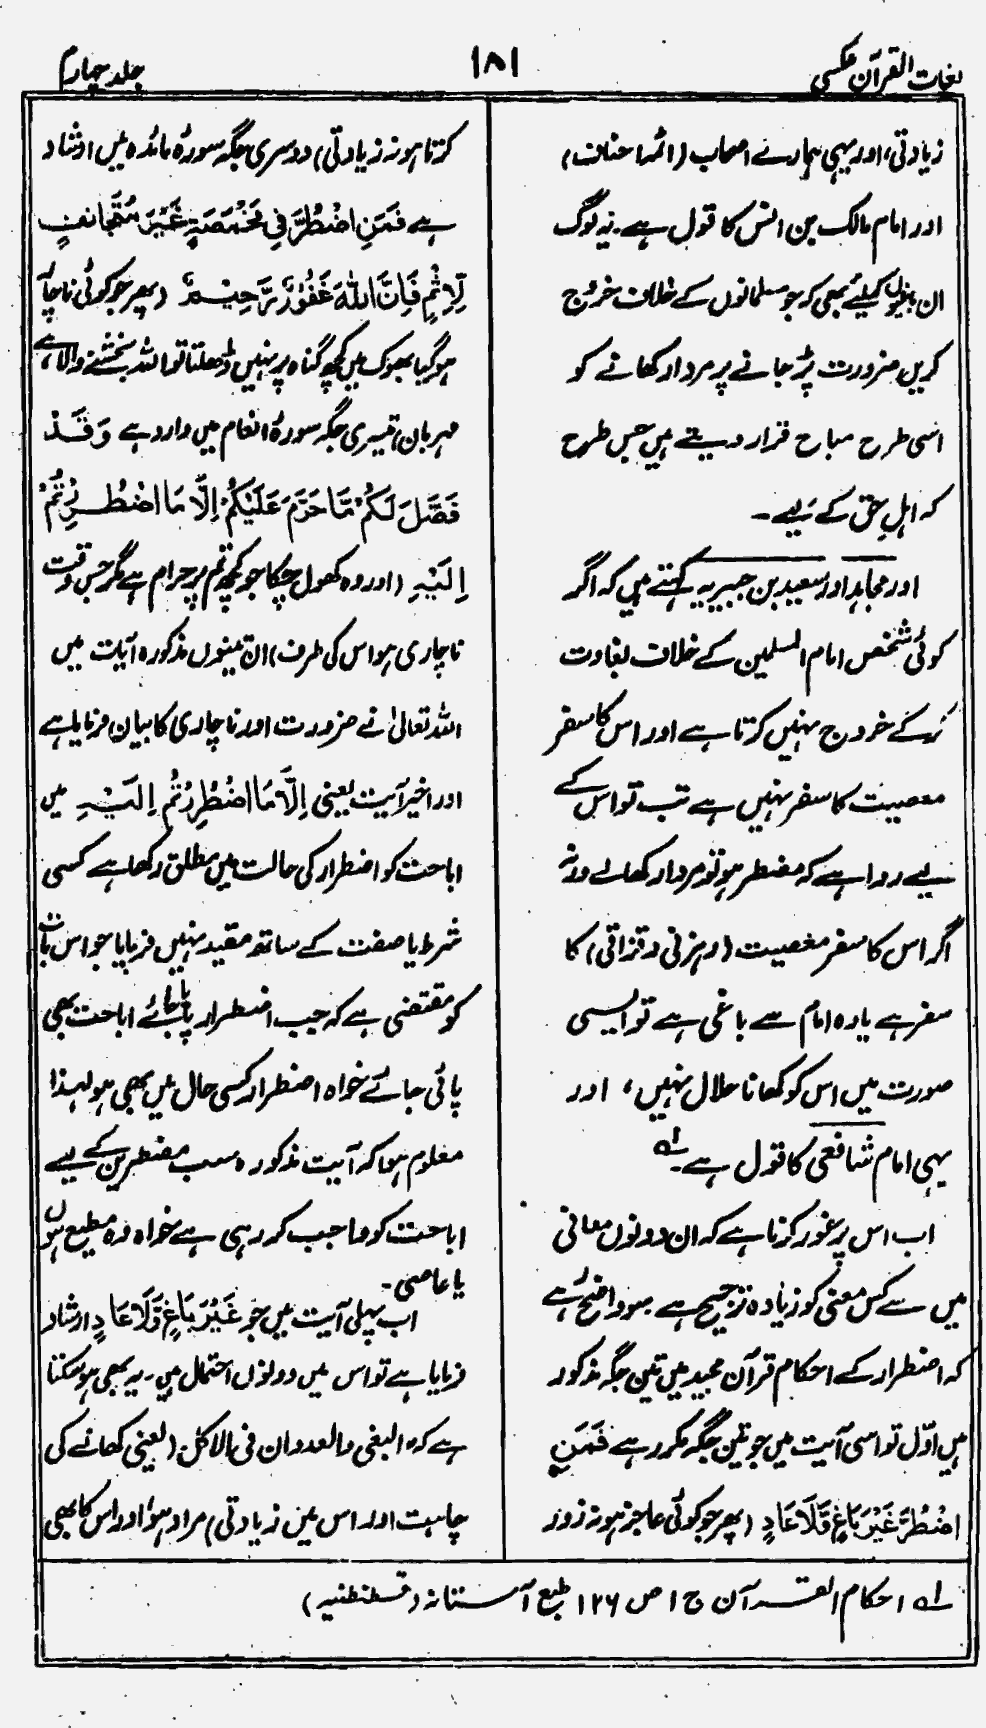 لغات القرآن عکسی
۱۸۱
جلد چہارم
زیادتی، اور یہی ہمارے اصحاب (ائمہ احناف)
اور امام مالک بن انس کا قول ہے۔ یہ لوگ
ان باغیوں کیلئے بھی کہ جو مسلمانوں کے خلاف خروج
کریں ضرورت پڑ جانے پر مردار کھانے کو
اسی طرح مباح قرار دیتے ہیں جس طرح
کہ اہلِ حق کے لیے۔
اور مجاہد اور سعید بن جبیر یہ کہتے ہیں کہ اگر
کوئی شخص امام المسلمین کے خلاف بغاوت
کرکے خروج نہیں کرتا ہے اور اس کا سفر
معصیت کا سفر نہیں ہے تب تو اس کے
لیے روا ہے کہ مضطر ہو تو مردار کھالے ورنہ
اگر اس کا سفر معصیت (رہزنی و قزاقی) کا
سفر ہے یا وہ امام سے باغی ہے تو ایسی
صورت میں اس کو کھانا حلال نہیں، اور
یہی امام شافعی کا قول ہے۔ لہ
اب اس پر غور کرنا ہے کہ ان دونوں معانی
میں سے کس معنی کو زیادہ ترجیح ہے سو واضح رہے
کہ اضطرار کے احکام قرآن مجید میں تین جگہ مذکور
ہیں اوّل تو اسی آیت میں جو تین جگہ مکرر ہے فَمَنِ
اضْطُرَّ غَیْرَ بَاغٍ وَّلَا عَادٍ (پھر جو کوئی عاجز ہو نہ زور
کرتا ہو نہ زیادتی) دوسری جگہ سورۂ مائدہ میں ارشاد
ہے فَمَنِ اضْطُرَّ فِی مَخْمَصَۃٍ غَیْرَ مُتَجَانِفٍ
لِّاِثْمٍ فَاِنَّ اللّٰہَ غَفُوْرٌ رَّحِیْمٌ (پھر جو کوئی ناچار
ہوگیا بھوک میں کچھ گناہ پر نہیں ڈھلتا تو اللہ بخشنے والا ہے،
مہربان) تیسری جگہ سورۂ انعام میں وارد ہے وَقَدْ
فَصَّلَ لَکُمْ مَّا حَرَّمَ عَلَیْکُمْ اِلَّا مَا اضْطُرِرْتُمْ
اِلَیْہِ (اور وہ کھول چکا جو کچھ تم پر حرام ہے مگر جس وقت
ناچاری ہو اس کی طرف) ان تینوں مذکورہ آیات میں
اللہ تعالیٰ نے ضرورت اور ناچاری کا بیان فرمایا ہے
اور اخیر آیت یعنی اِلَّا مَا اضْطُرِرْتُمْ اِلَیْہِ میں
اباحت کو اضطرار کی حالت میں مطلق رکھا ہے کسی
شرط یا صفت کے ساتھ مقید نہیں فرمایا جو اس بات
کو مقتضی ہے کہ جب اضطرار پایا جائے اباحت بھی
پائی جائے خواہ اضطرار کسی حال میں بھی ہو لہذا
معلوم ہوا کہ آیت مذکورہ سب مضطرین کے لیے
اباحت کو واجب کر رہی ہے خواہ وہ مطیع ہوں
یا عاصی۔
اب پہلی آیت میں جو غَیْرَ بَاغٍ وَّلَا عَادٍ ارشاد
فرمایا ہے تو اس میں دونوں احتمال ہیں۔ یہ بھی ہوسکتا
ہے کہ البغی والعدوان فی الاکل (یعنی کھانے کی
چاہت اور اس میں زیادتی) مراد ہو اور اس کا بھی
لہ احکام القرآن ج ۱ ص ۱۲۶ طبع آستانہ (قسطنطنیہ)